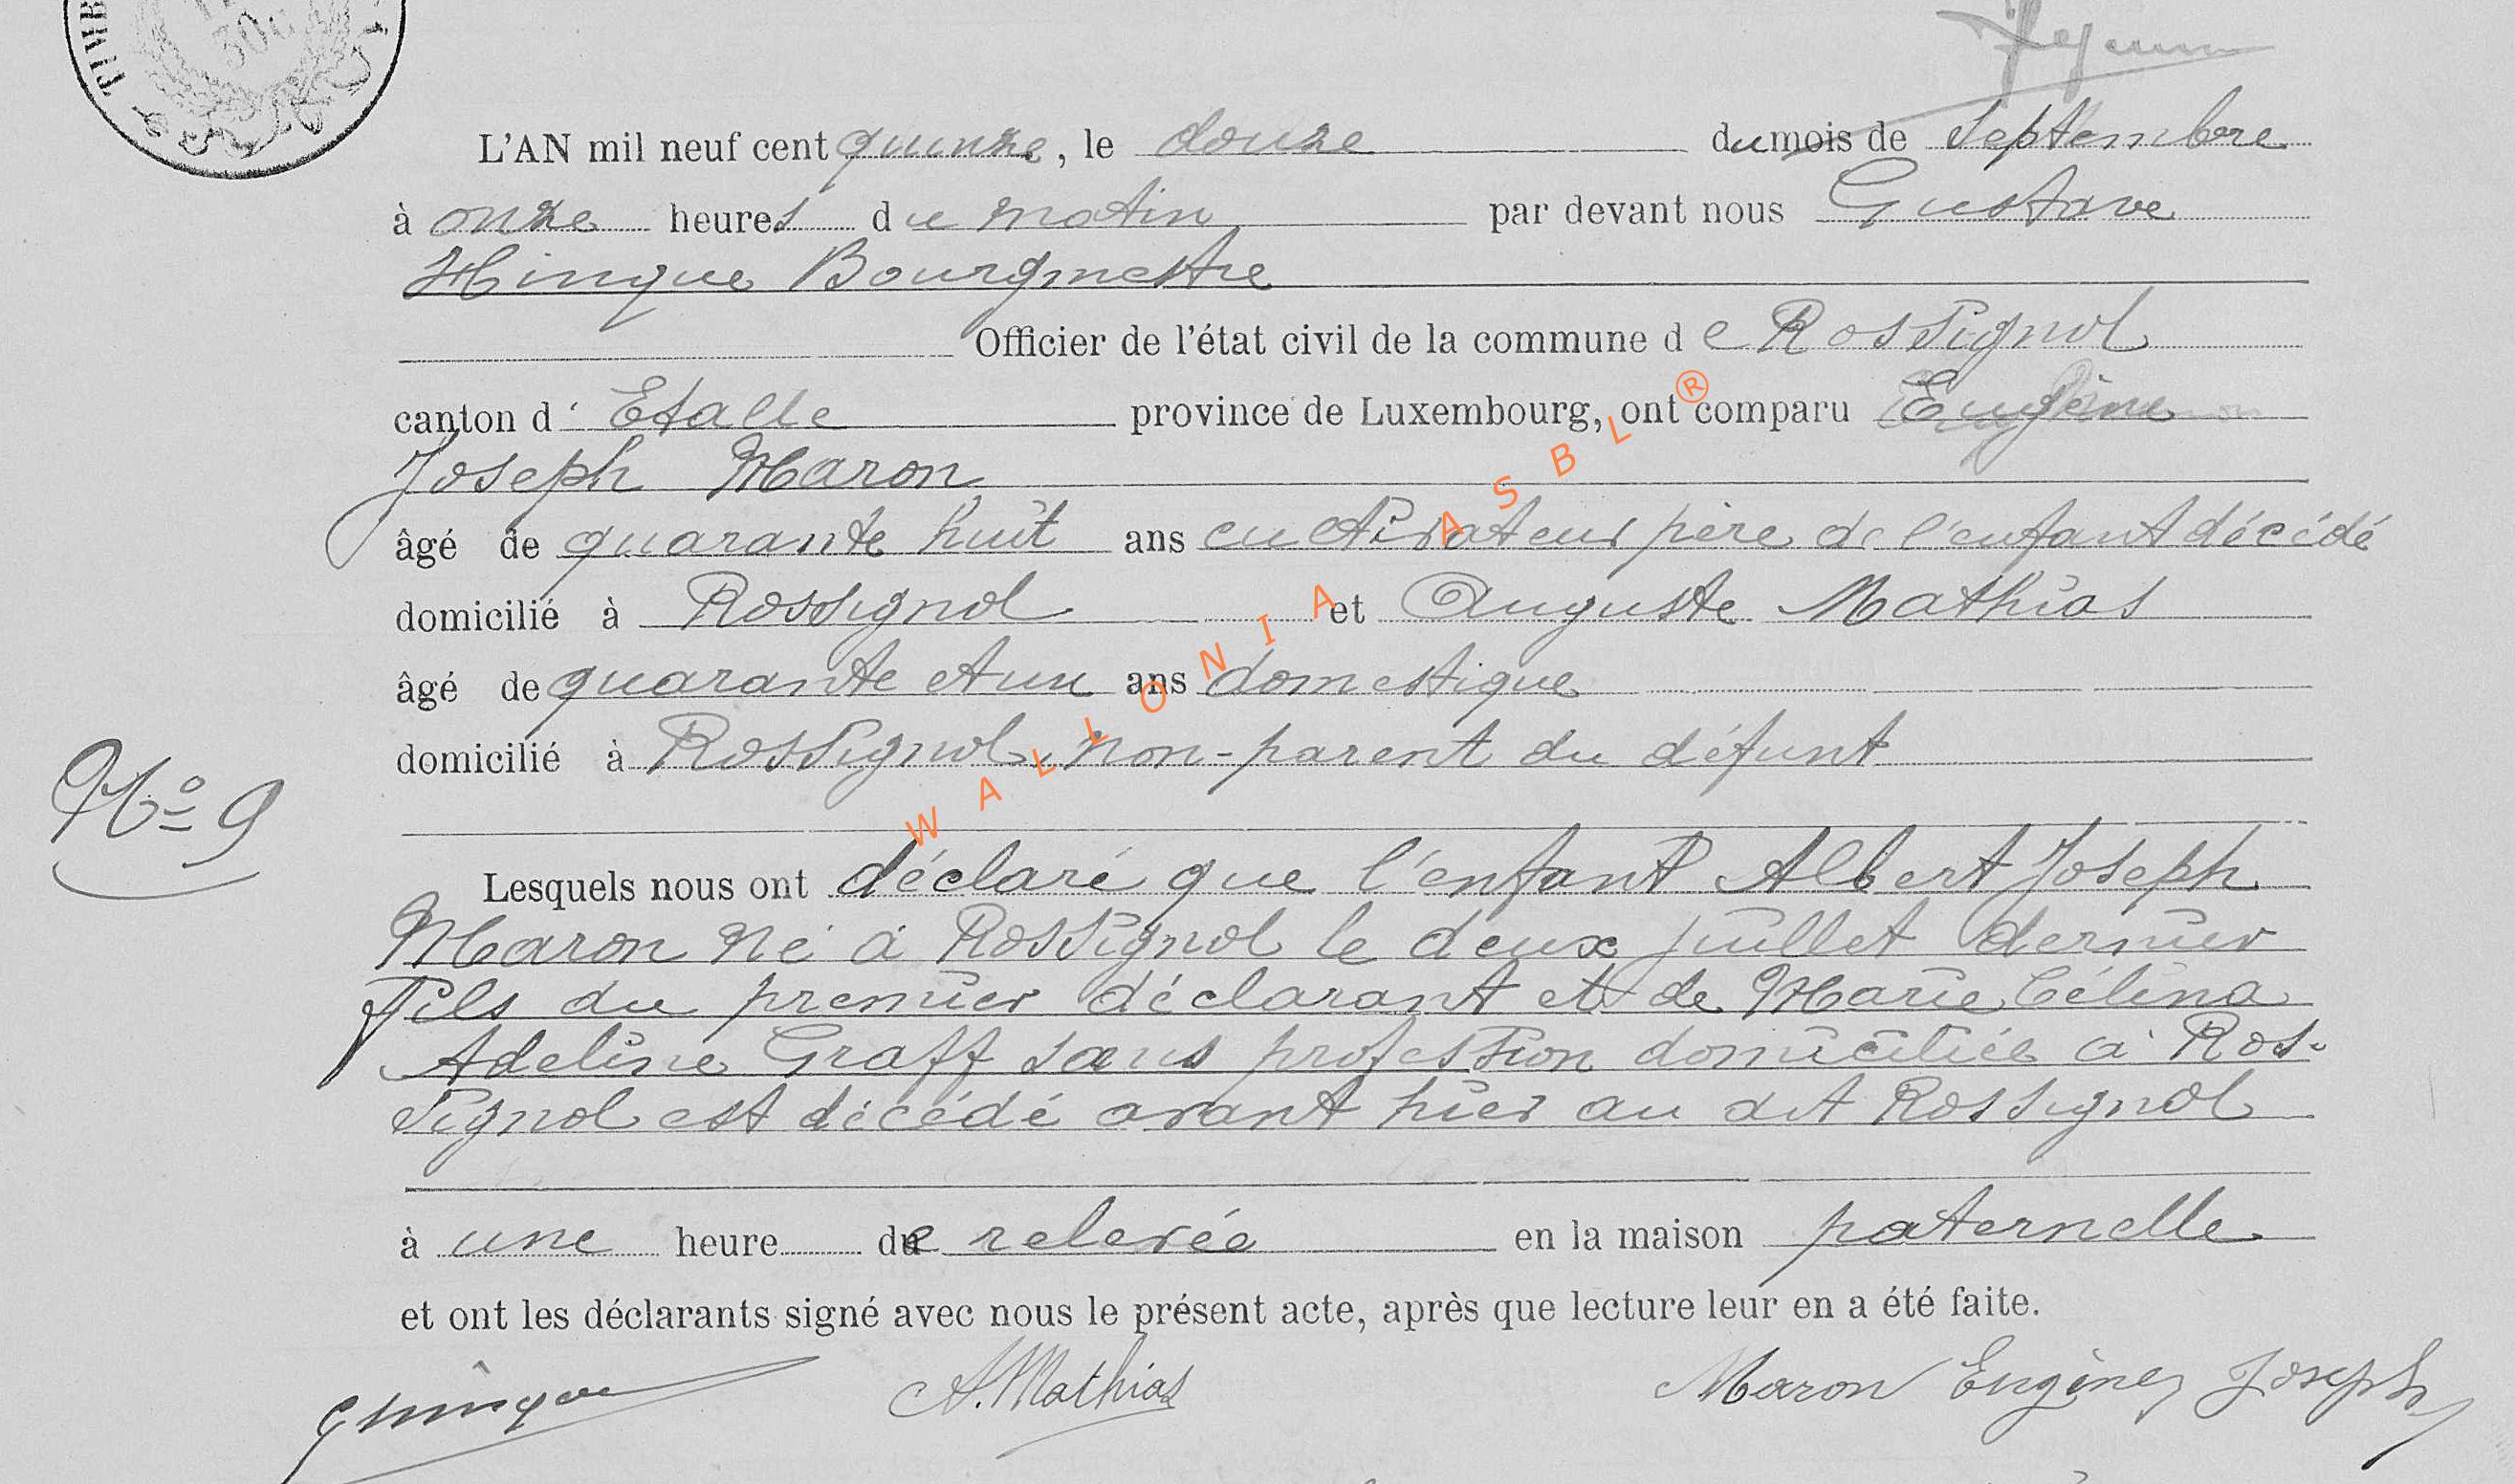 TIMB
30c
L'AN mil neuf cent quinze, le douze du mois de Septembre
à onze heures du matin par devant nous Gustave
Hinque Bourgmestre
Officier de l'état civil de la commune de Rossignol
canton d'Etalle province de Luxembourg, ont comparu Eugène
Joseph Maron
âgé de quarante huit ans cultivateur père de l'enfant décédé
domicilié à Rossignol et Auguste Mathias
âgé de quarante et un ans domestique
domicilié à Rossignol, non-parent du défunt
Nº 9
Lesquels nous ont déclaré que l'enfant Albert Joseph
Maron né à Rossignol le deux juillet dernier
fils du premier déclarant et de Marie Célina
Adeline Graff sans profession domiciliée à Ros-
signol est décédé avant hier au dit Rossignol
à une heure de relevée en la maison paternelle
et ont les déclarants signé avec nous le présent acte, après que lecture leur en a été faite.
GHinque A. Mathias Maron Eugène Joseph
WALLONIA ASBL®